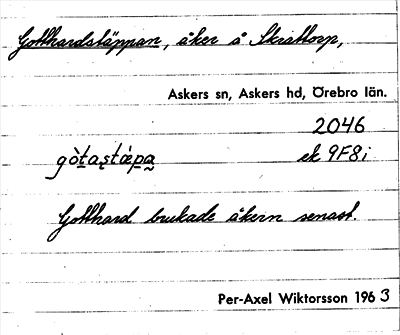 Gotthardstäppan, åker å Skrattorp,
Askers sn, Askers hd, Örebro län.
2046
gòtaṣtæpa ek 9F8i
Gotthard brukade åkern senast.
Per-Axel Wiktorsson 1963